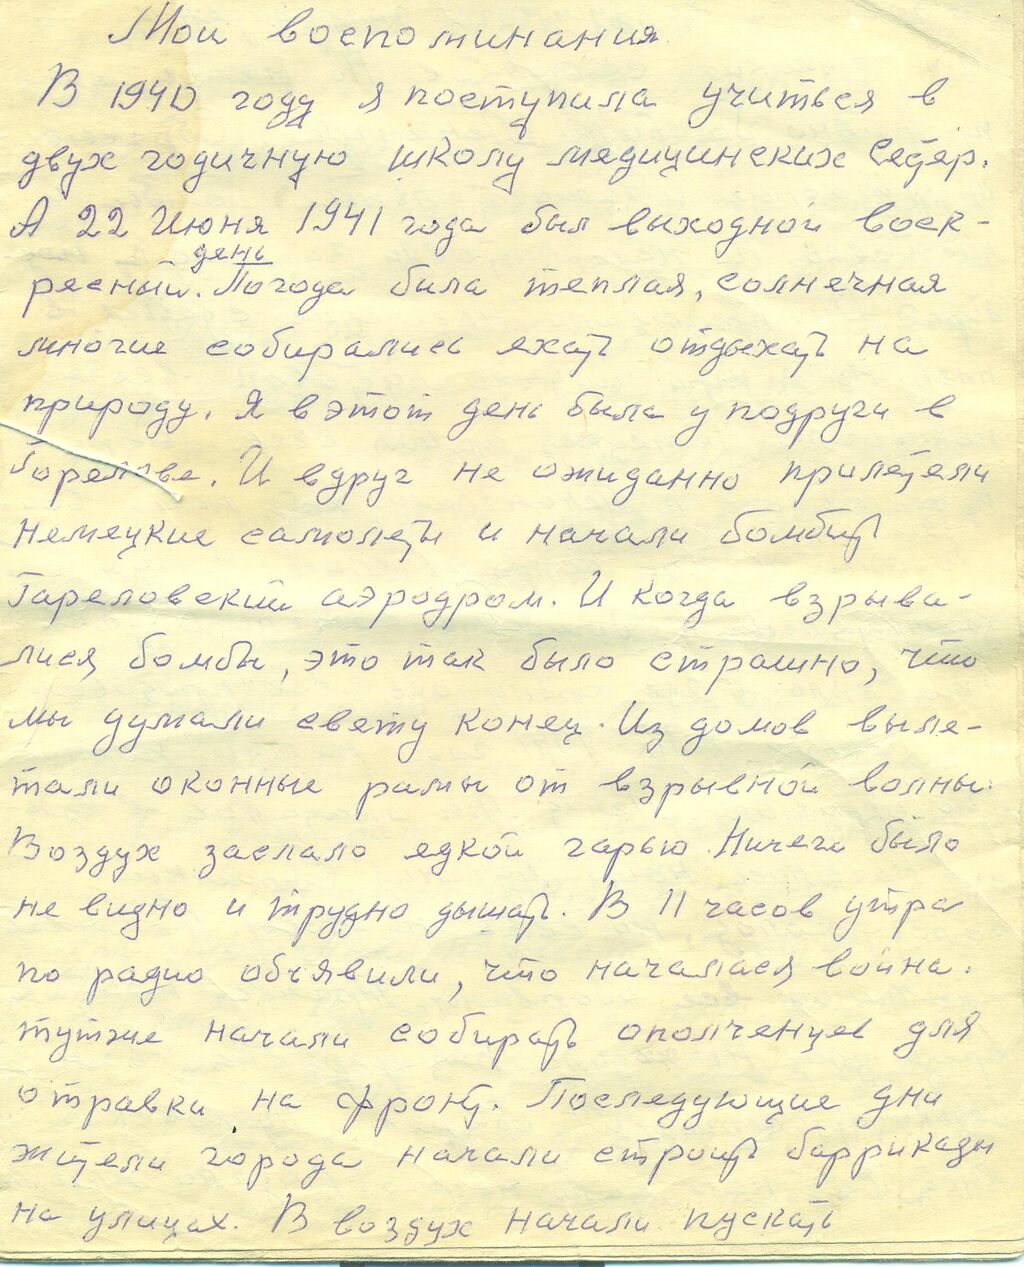 Мои воспоминания
В 1940 году я поступила учиться в
двух годичную школу медицинских сестер.
А 22 Июня 1941 года был выходной воск-
день
ресный. Погода была теплая, солнечная
многие собирались ехать отдыхать на
природу. Я в этот день была у подруги в
Горелове. И вдруг не ожиданно прилетели
немецкие самолеты и начали бомбить
Гареловский аэродром. И когда взрыва-
лися бомбы, это так было страшно, что
мы думали свету конец. Из домов выле-
тали оконные рамы от взрывной волны.
Воздух заслало едкой гарью. Ничего было
не видно и трудно дышать. В 11 часов утра
по радио объявили, что началася война.
тутже начали собирать ополченцев для
отравки на фронт. Последующие дни
жители города начали строить баррикады
на улицах. В воздух начали пускать